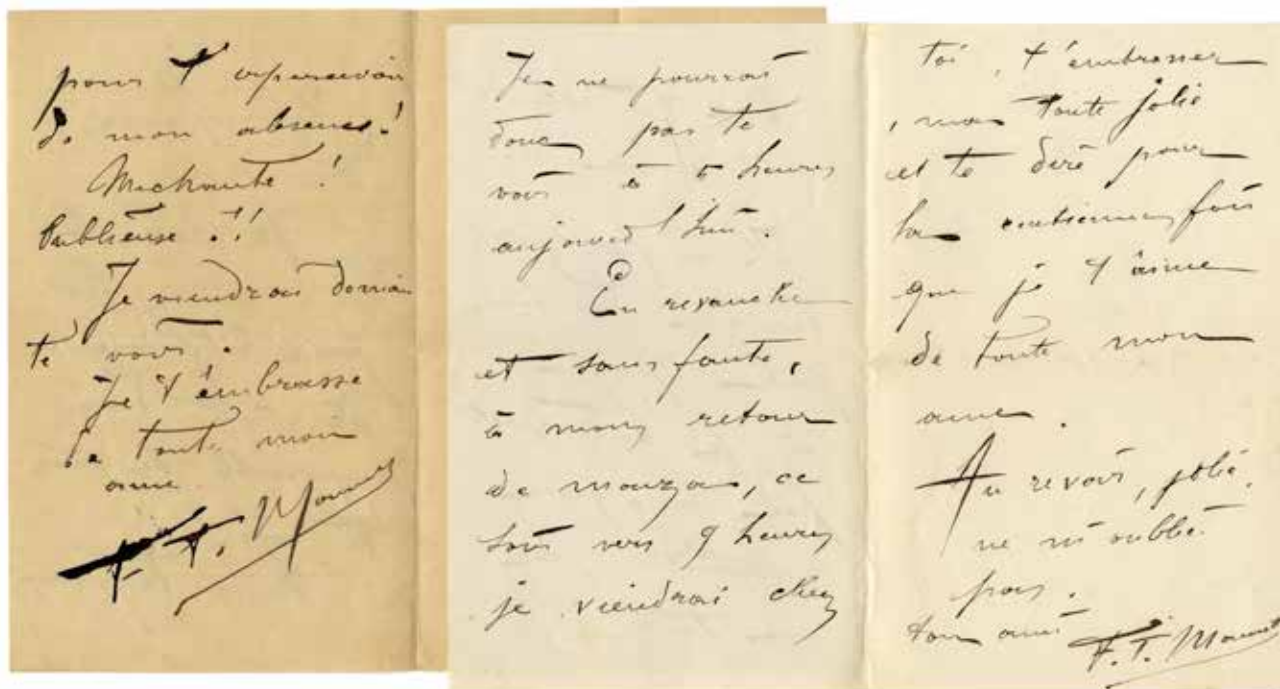 pour t'apercevoir
de mon absence !
Méchante !
Oublieuse !!
Je viendrai demain
te voir.
Je t'embrasse
de toute mon
ame
F. T. Monnet
Je ne pourrai
donc pas te
voir à 5 heures
aujourd'hui.
En revanche
et sans faute,
à mon retour
de
ce
soir vers 9 heures
je viendrai chez
toi, t'embrasser
, ma toute jolie
et te dire pour
la centieme fois
que je t'aime
de toute mon
ame.
Au revoir, jolie,
ne m'oublie
pas.
ton ami F. T. Monnet